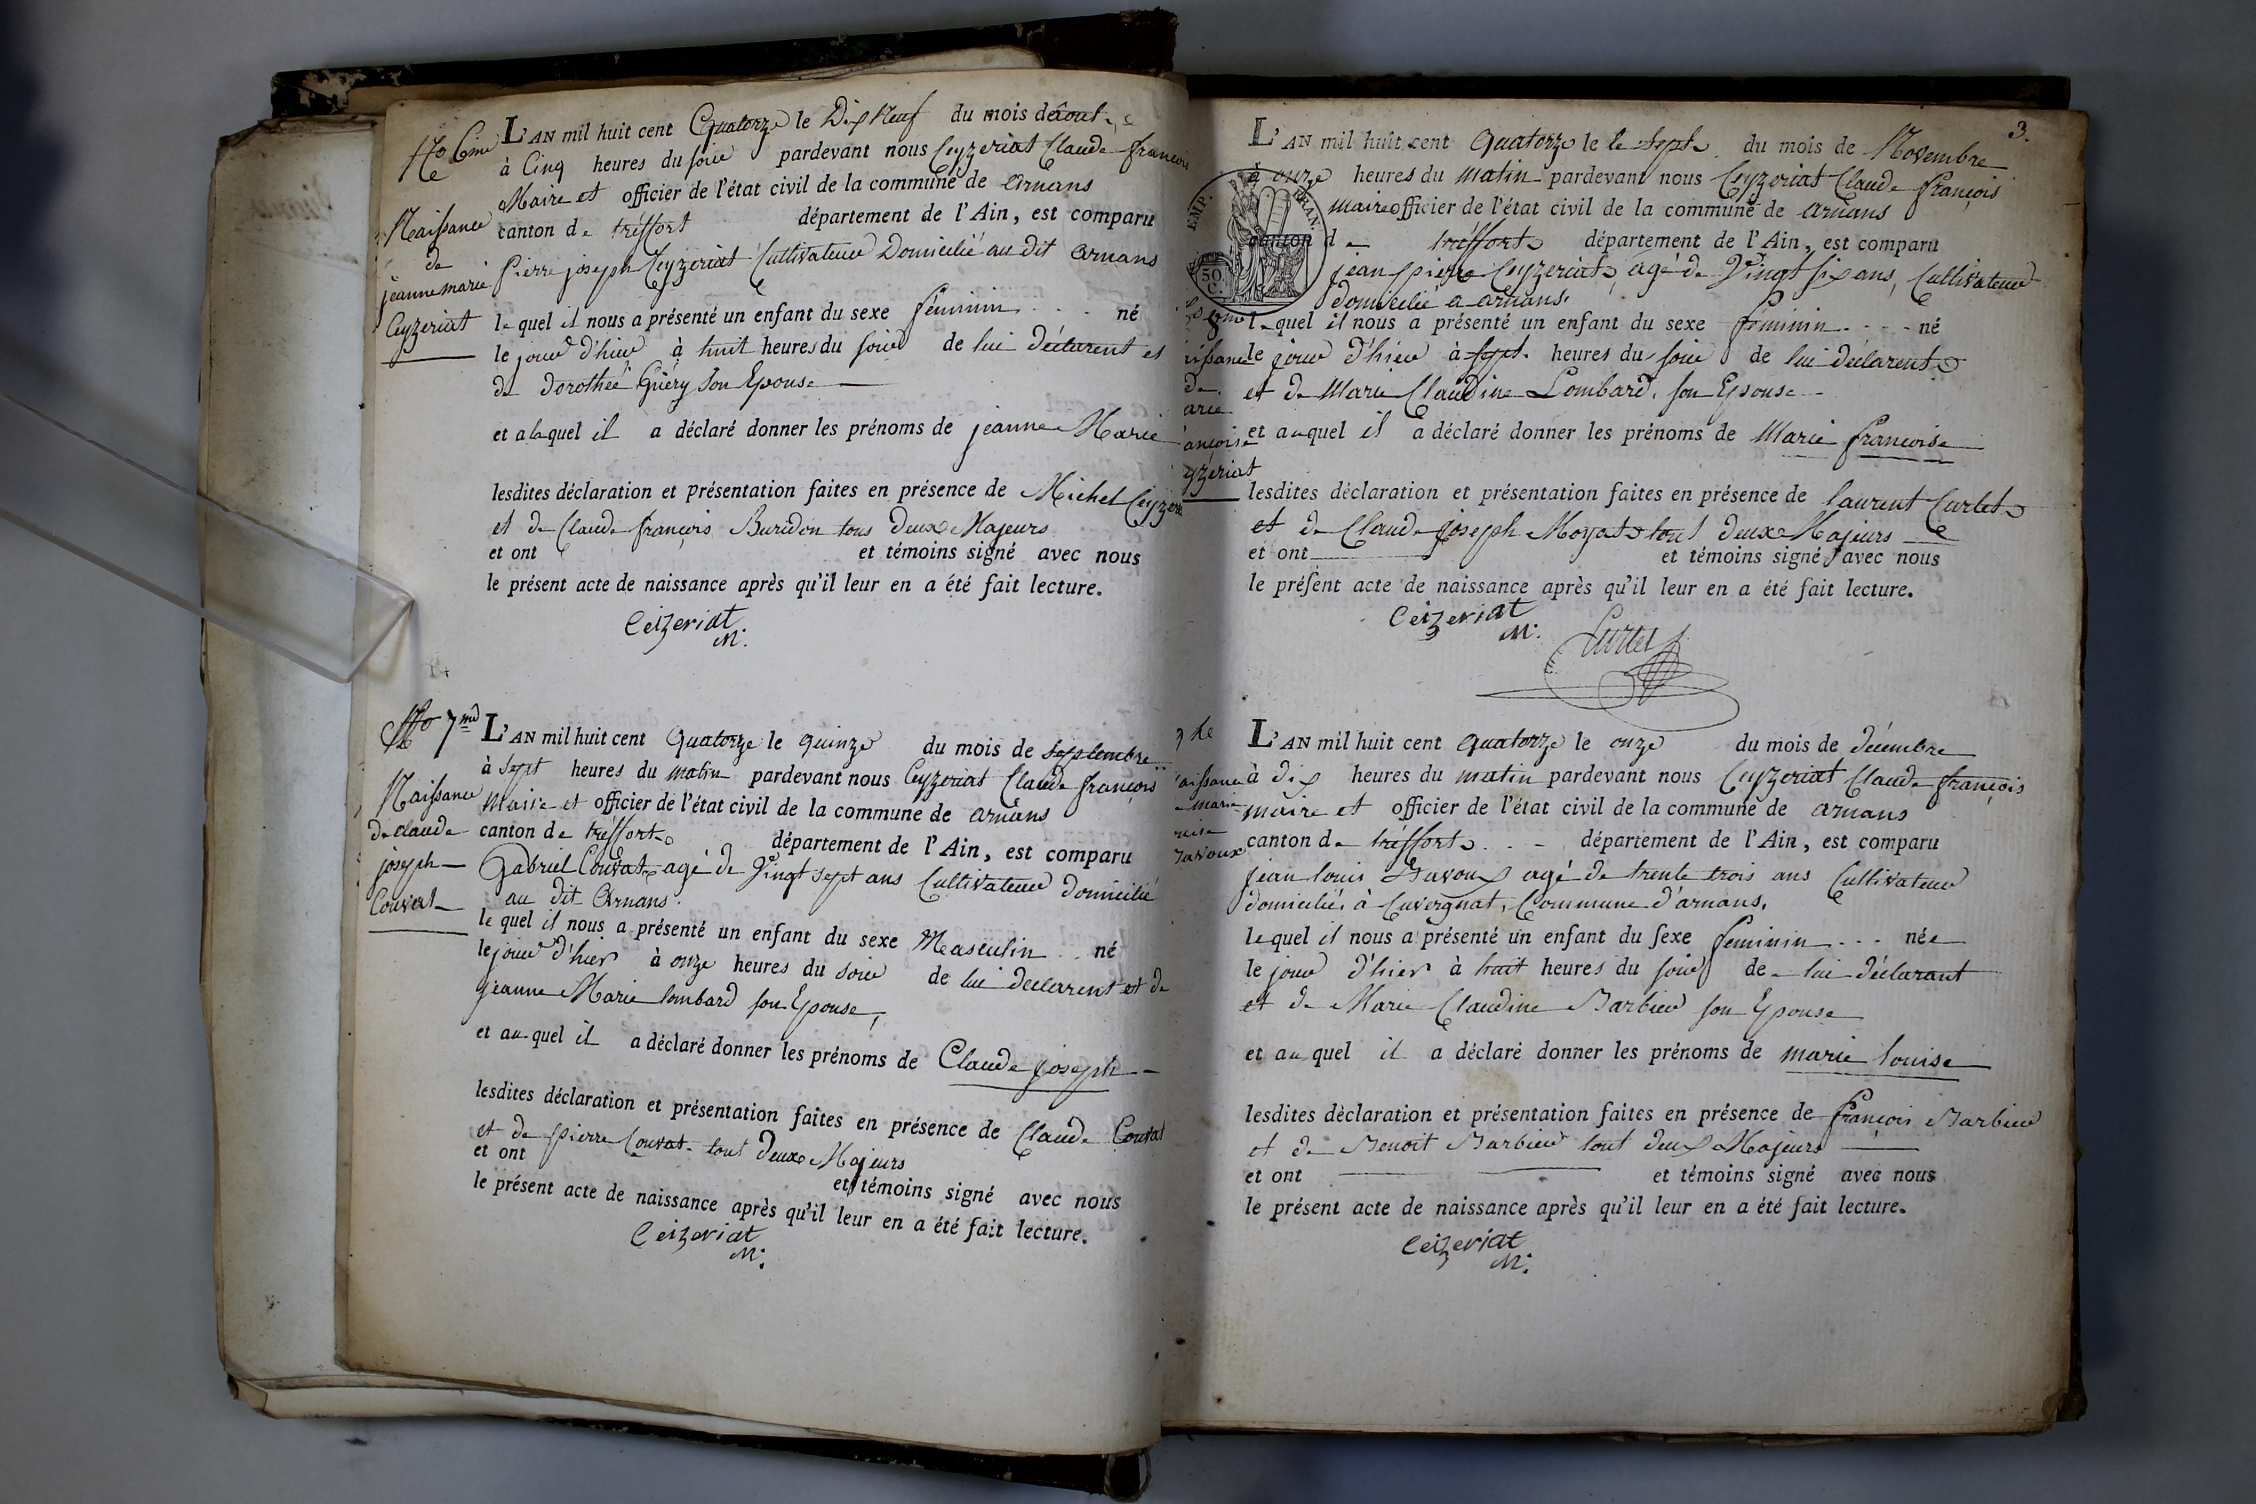 No 6me
Naissance
de
jeanne marie
Ceyzeriat
L'AN mil huit cent Quatorze le Dix Neuf du mois de aout
à Cinq heures du soir pardevant nous Ceyzeriat Claude françois
Maire et officier de l'état civil de la commune de arnans
canton de tréffort département de l'Ain, est comparu
Pierre joseph Ceyzeriat Cultivateur Domicilié au dit arnans
le quel il nous a présenté un enfant du sexe féminin né
le jour d'hier à huit heures du soir de lui déclarent et
de dorotheé Guéry son Epouse
et a laquel il a déclaré donner les prénoms de jeanne Marie
lesdites déclaration et présentation faites en présence de Michel Ceyzeri
et de Claude françois Buridon tous deux Majeurs
et ont et témoins signé avec nous
le présent acte de naissance après qu'il leur en a été fait lecture.
Ceizeriat
M.
No 7me
Naissance
de claude
joseph
Couvat
L'AN mil huit cent Quatorze le quinze du mois de septembre
à sept heures du matin pardevant nous Ceyzeriat Claude françois
Maire et officier de l'état civil de la commune de arnans
canton de treffort département de l'Ain, est comparu
Gabriel Couvat agé de Vingt sept ans Cultivateur domicilié
au dit Arnans.
le quel il nous a présenté un enfant du sexe Masculin né
le jour d'hier à onze heures du soir de lui declarent et de
jeanne Marie lombard son Epouse,
et au quel il a déclaré donner les prénoms de Claude joseph
lesdites déclaration et présentation faites en présence de Claude Couvat
et de pierre Couvat tout deux Majeurs
et ont et témoins signé avec nous
le présent acte de naissance après qu'il leur en a été fait lecture.
Ceizeriat
M.
3.
EMP. FRAN.
50
C.
8 eme
aissance
de
arie
ançoise
yzeriat
L'AN mil huit cent Quatorze le le sept du mois de Novembre
à onze heures du matin pardevant nous Ceyzeriat Claude françois
maire officier de l'état civil de la commune de arnans
canton de tréffort département de l'Ain, est comparu
jean pierre Ceyzeriat, agé de Vingt six ans, Cultivateur
domicilié a arnans.
le quel il nous a présenté un enfant du sexe féminin né
le jour d'hier à sept heures du soir de lui déclarent
et de Marie Claudine Lombard, son Epouse
et au quel il a déclaré donner les prénoms de Marie françoise
lesdites déclaration et présentation faites en présence de laurent Curtet
et de Claude joseph Moyat tout deux Majeurs
et ont et témoins signé avec nous
le présent acte de naissance après qu'il leur en a été fait lecture.
Ceizeriat
M.
Curtet
aissance
marie
ouise
Bavoux
L'AN mil huit cent Quatorze le onze du mois de décembre
à dix heures du matin pardevant nous Ceyzeriat Claude françois
maire et officier de l'état civil de la commune de arnans
canton de tréffort département de l'Ain, est comparu
jean louis Bavoux agé de trente trois ans Cultivateur
domicilié à Cuvergnat, Commune d'arnans,
le quel il nous a présenté un enfant du sexe feminin née
le jour d'hier à huit heures du soir de lui déclarant
et de Marie Claudine Barbier son Epouse
et au quel il a déclaré donner les prénoms de marie louise
lesdites déclaration et présentation faites en présence de françois Barbier
et de Benoit Barbier tout deux Majeurs
et ont et témoins signé avec nous
le présent acte de naissance après qu'il leur en a été fait lecture.
Ceizeriat
M.